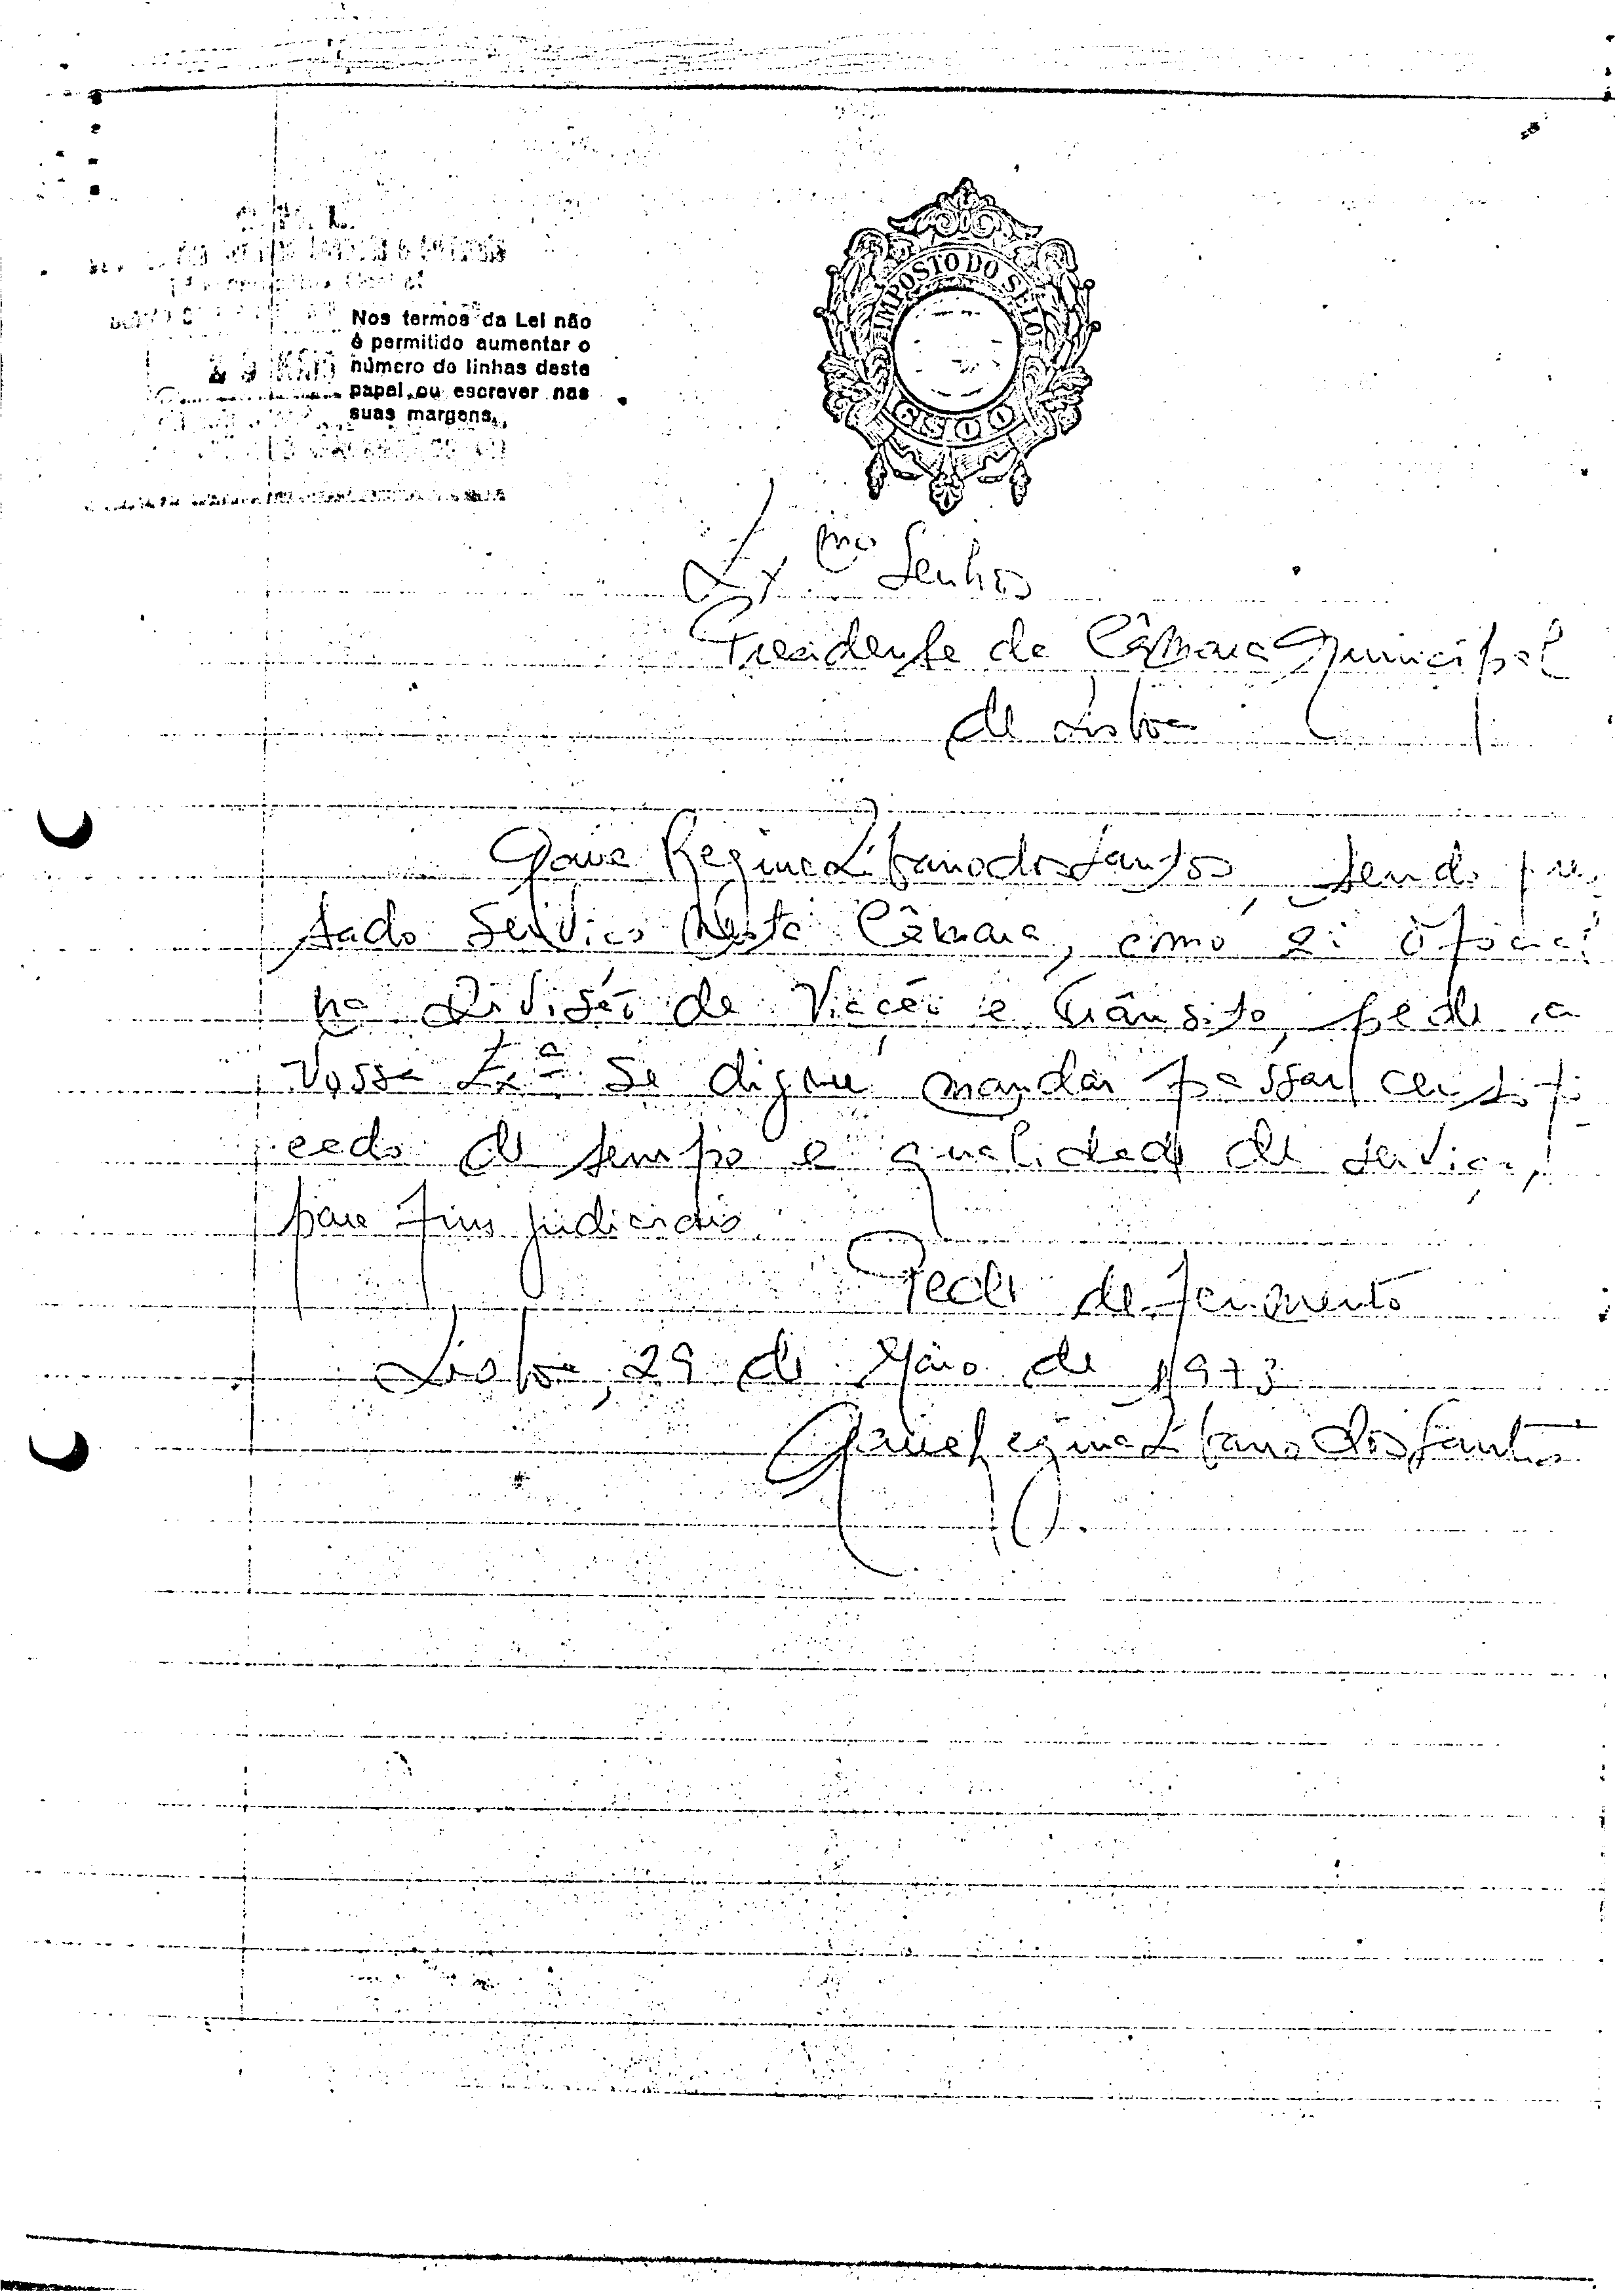 Nos termos da Lei não
é permitido aumentar o
número de linhas deste
papel ou escrever nas
suas margens.
IMPOSTO DO SELO
ESC. 5$00
Exmo Senhor
Presidente da Câmara Municipal
de Lisboa
Maria Regina Líbano dos Santos, tendo pres
tado serviço nesta Câmara, como 2º oficial
na Divisão de Viação e Trânsito, pede a
Vossa Exª se digne mandar passar certifi
cado de tempo e qualidade de serviço,
para fins judiciais.
Pede deferimento
Lisboa, 29 de Maio de 1973
Maria Regina Líbano dos Santos